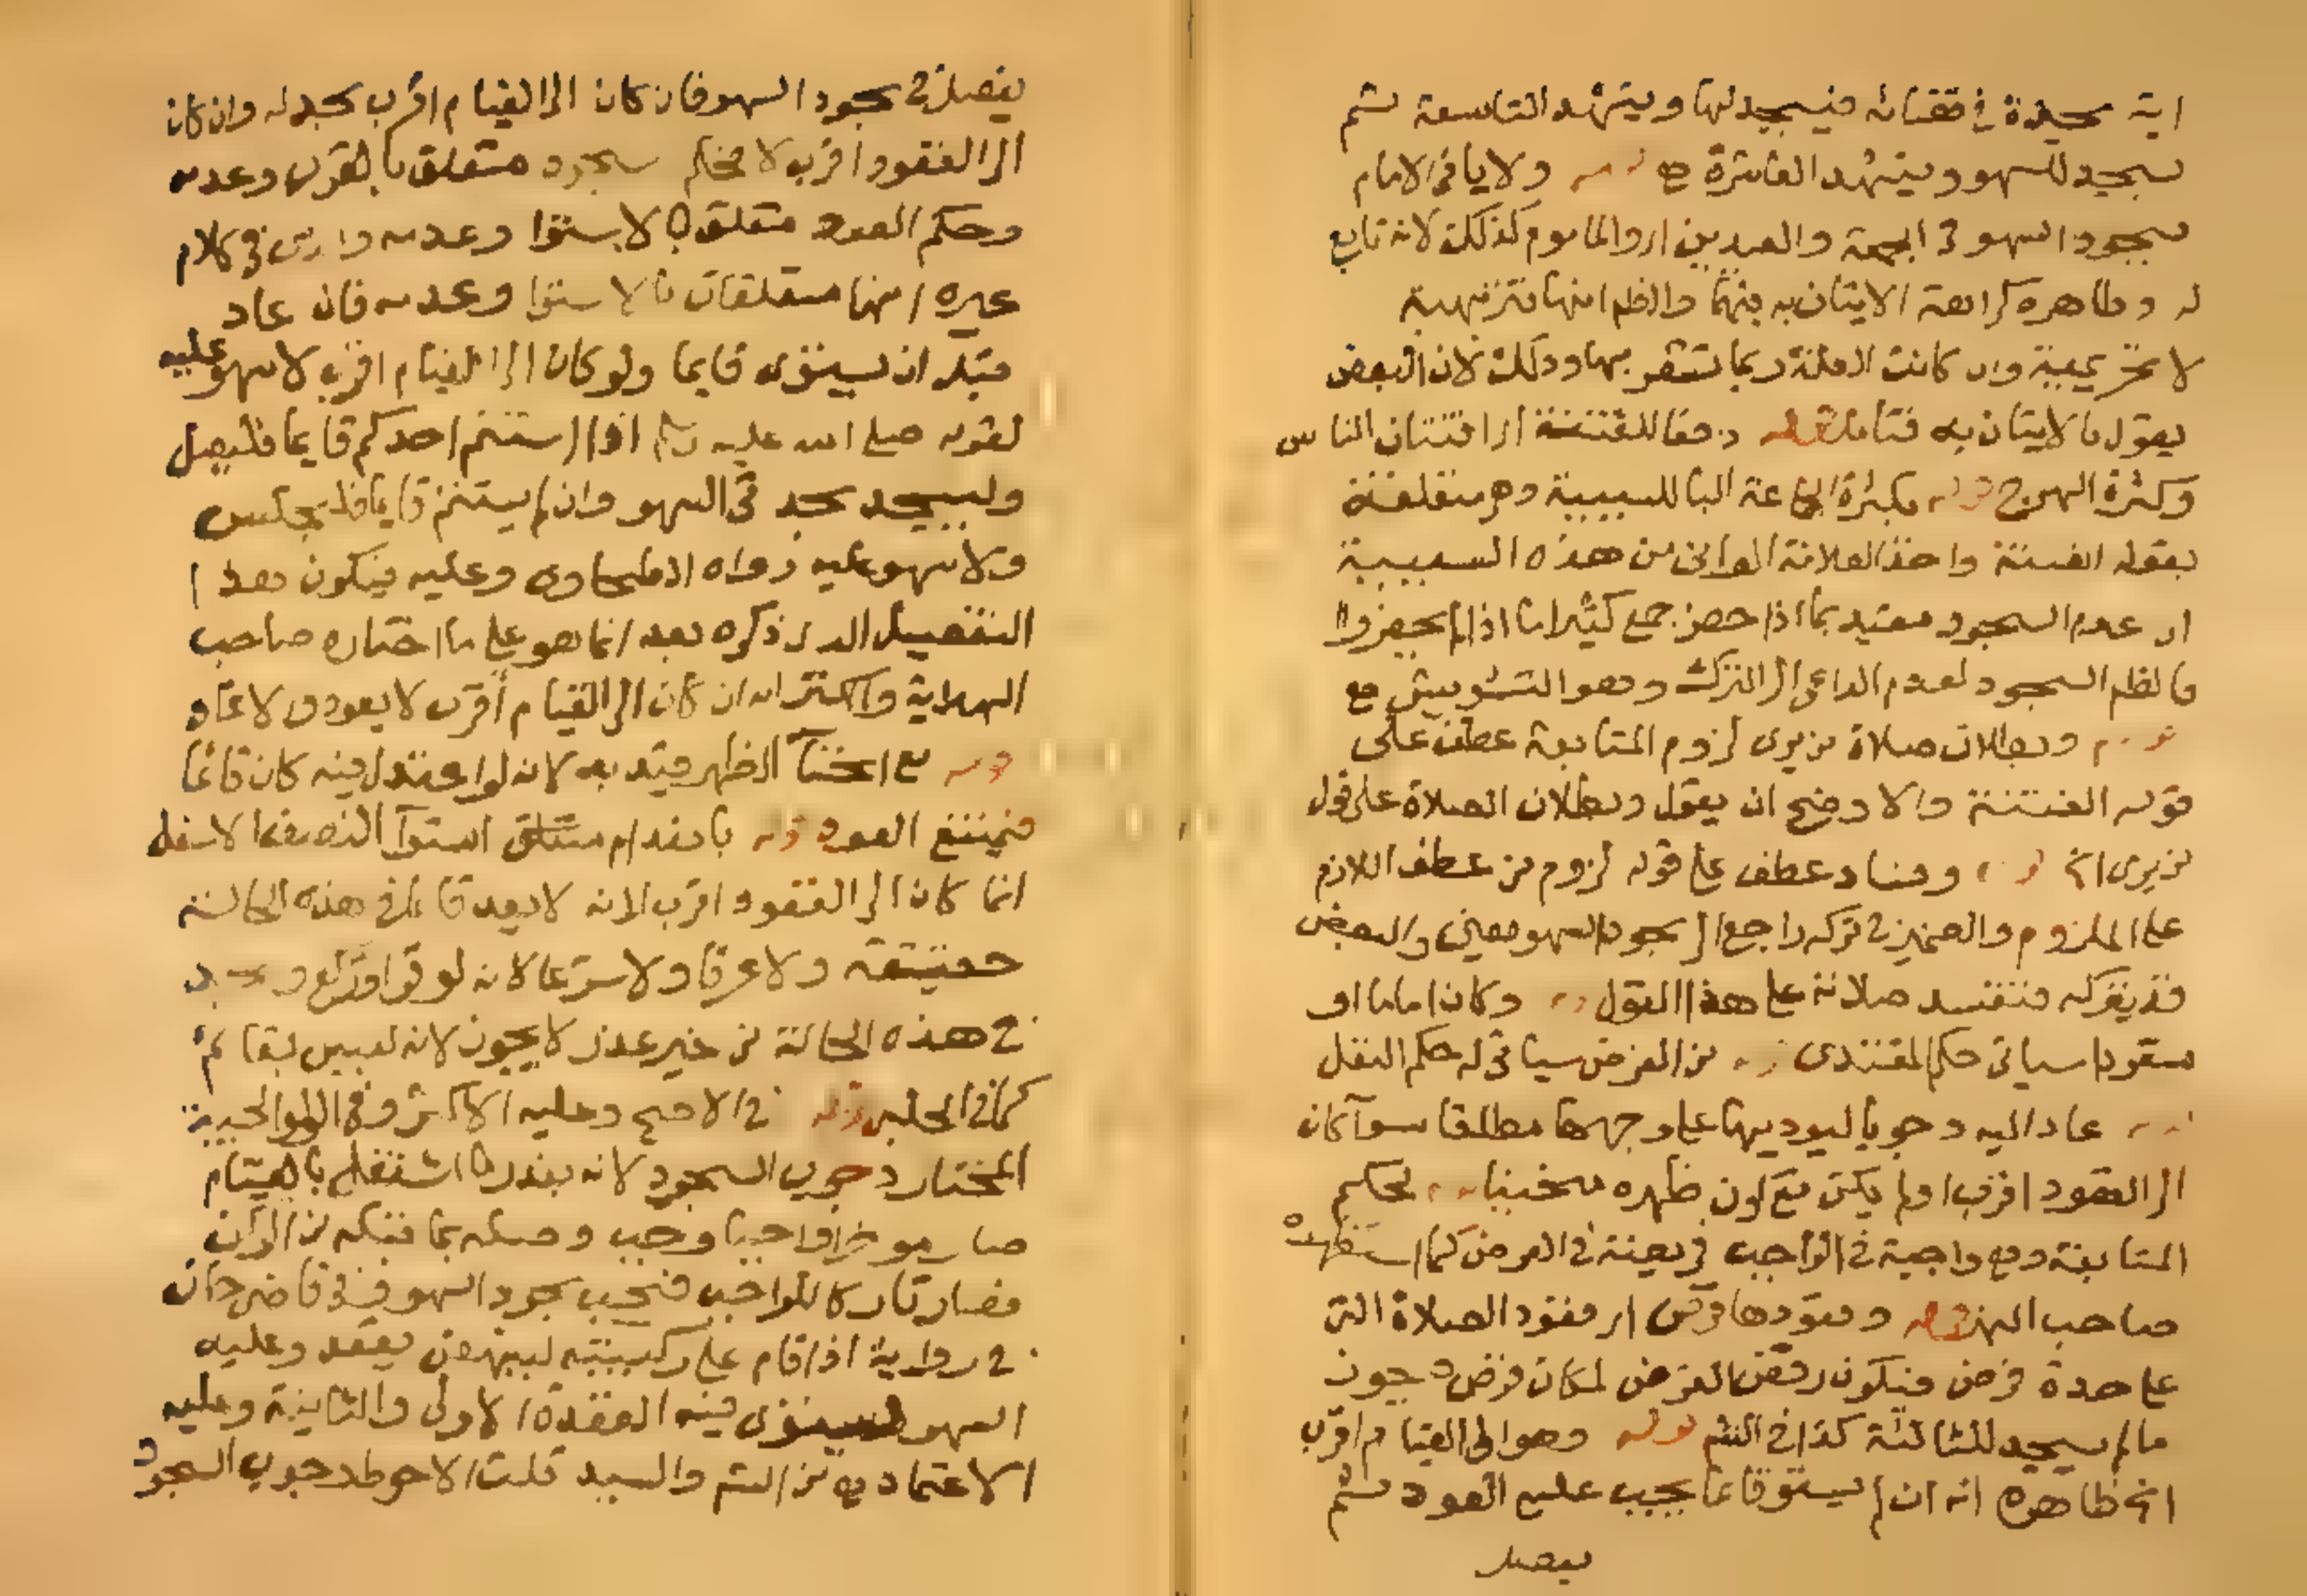 اية سجدة في قضائه فيسجد لها ويتشهد التاسعة ثم
يسجد للسهو ويتشهد العاشرة ح قوله ولا ياتي الامام
بسجود السهو في الجمعة والعيدين اي والماموم كذلك لانه تابع
له وظاهره كراهة الاتيان به فيهما والظاهر انها تنزيهية
لا تحريمية وان كانت العلة ربما تشعر بها وذلك لان البعض
يقول بالاتيان به فتامل قوله دفعا للفتنة اي افتتان الناس
وكثرة الهرج قوله بكثرة الجماعة الباء للسببية وهي متعلقة
بقوله الفتنة واخذ العلامة الواني من هذه السببية
ان عدم السجود مقيد بما اذا حضر جمع كثير اما اذا لم يحضروا
فالظاهر السجود لعدم الداعي الى الترك وهو التشويش مع
قوله وبطلان صلاة من يرى لزوم المتابعة عطف على
قوله الفتنة والاوضح ان يقول وبطلان الصلاة على قول
من يرى الخ قوله وفساد عطف على قوله لزوم من عطف اللازم
على الملزوم والضمير في تركه راجع الى سجود السهو يعني والبعض
قد يتركه فتفسد صلاته على هذا القول قوله وكان اماما او
منفردا سياتي حكم المقتدي قوله من الفرض سياتي له حكم النفل
قوله عاد اليه وجوبا ليوديها على وجهها مطلقا سواء كان
الى القعود اقرب او لم يكن مع كون ظهره منحنيا قوله لحكم
المتابعة وهي واجبة في الواجب فريضة في الفرض كما استظهره
صاحب النهر قوله وقعودها فرض اي قعود الصلاة التي
على حدة فرض فيكون رفض الفرض لمكان فرض فيجوز
ما لم يسجد للثالثة كذا في الشم قوله وهو الى القيام اقرب
الخ ظاهره انه ان لم يستو قائما يجب عليه العود ثم
يفصل
يفصل في سجود السهو فان كان الى القيام اقرب سجد له وان كان
الى القعود اقرب لا فحكم سجود متعلق بالقرب وعدمه
وحكم العود متعلق بالاستوا وعدمه والذي في كلام
غيره انهما متعلقان بالاستوا وعدمه فان عاد
قبل ان يستوي قايما ولو كان الى القيام اقرب لا سهو عليه
لقوله صلى الله عليه وسلم اذا استتم احدكم قايما فليصل
وليسجد سجدتي السهو وان لم يستتم قايما فليجلس
ولا سهو عليه رواه الطحاوي وعليه فيكون هذا
التفصيل الذي ذكره بعد انما هو على ما اختاره صاحب
الهداية والكنز انه ان كان الى القيام اقرب لا يعود والا عاد
قوله مع انحناء الظهر قيد به لانه لو اعتدل فيه كان قائما
فيمتنع العود قوله بانعدام متعلق استواء النصف الاسفل
انما كان الى القعود اقرب لانه لا يعد قائما في هذه الحالة
حقيقة ولا عرفا ولا شرعا لانه لو قرا وركع وسجد
في هذه الحالة من غير عذر لا يجوز لانه ليس بقائم
كما في الحلبي قوله في الاصح وعليه الاكثر وفي الولوالجية
المختار وجوب السجود لانه بقدر ما اشتغل بالقيام
صار موخرا واجبا وجب وصله بما قبله من الركن
فصار تاركا للواجب فيجب سجود السهو ففي قاضي خان
في رواية اذا قام على ركبتيه لينهض يقعد وعليه
السهو يستوي فيه القعدة الاولى والثانية وعليه
الاعتماد من الشم والسيد قلت الاحوط وجوب السجود